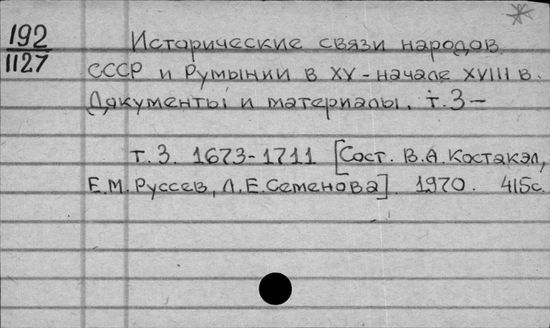 192
1127
Исторические связи народов
СССР и Румынии в XV - начале XVIII в.
Документы и материалы. т. 3 -
т. 3. 1673-1711 [Сост. В.А. Костакэл,
Е.М. Руссев, Л.Е. Семенова]. 1970. 415с.